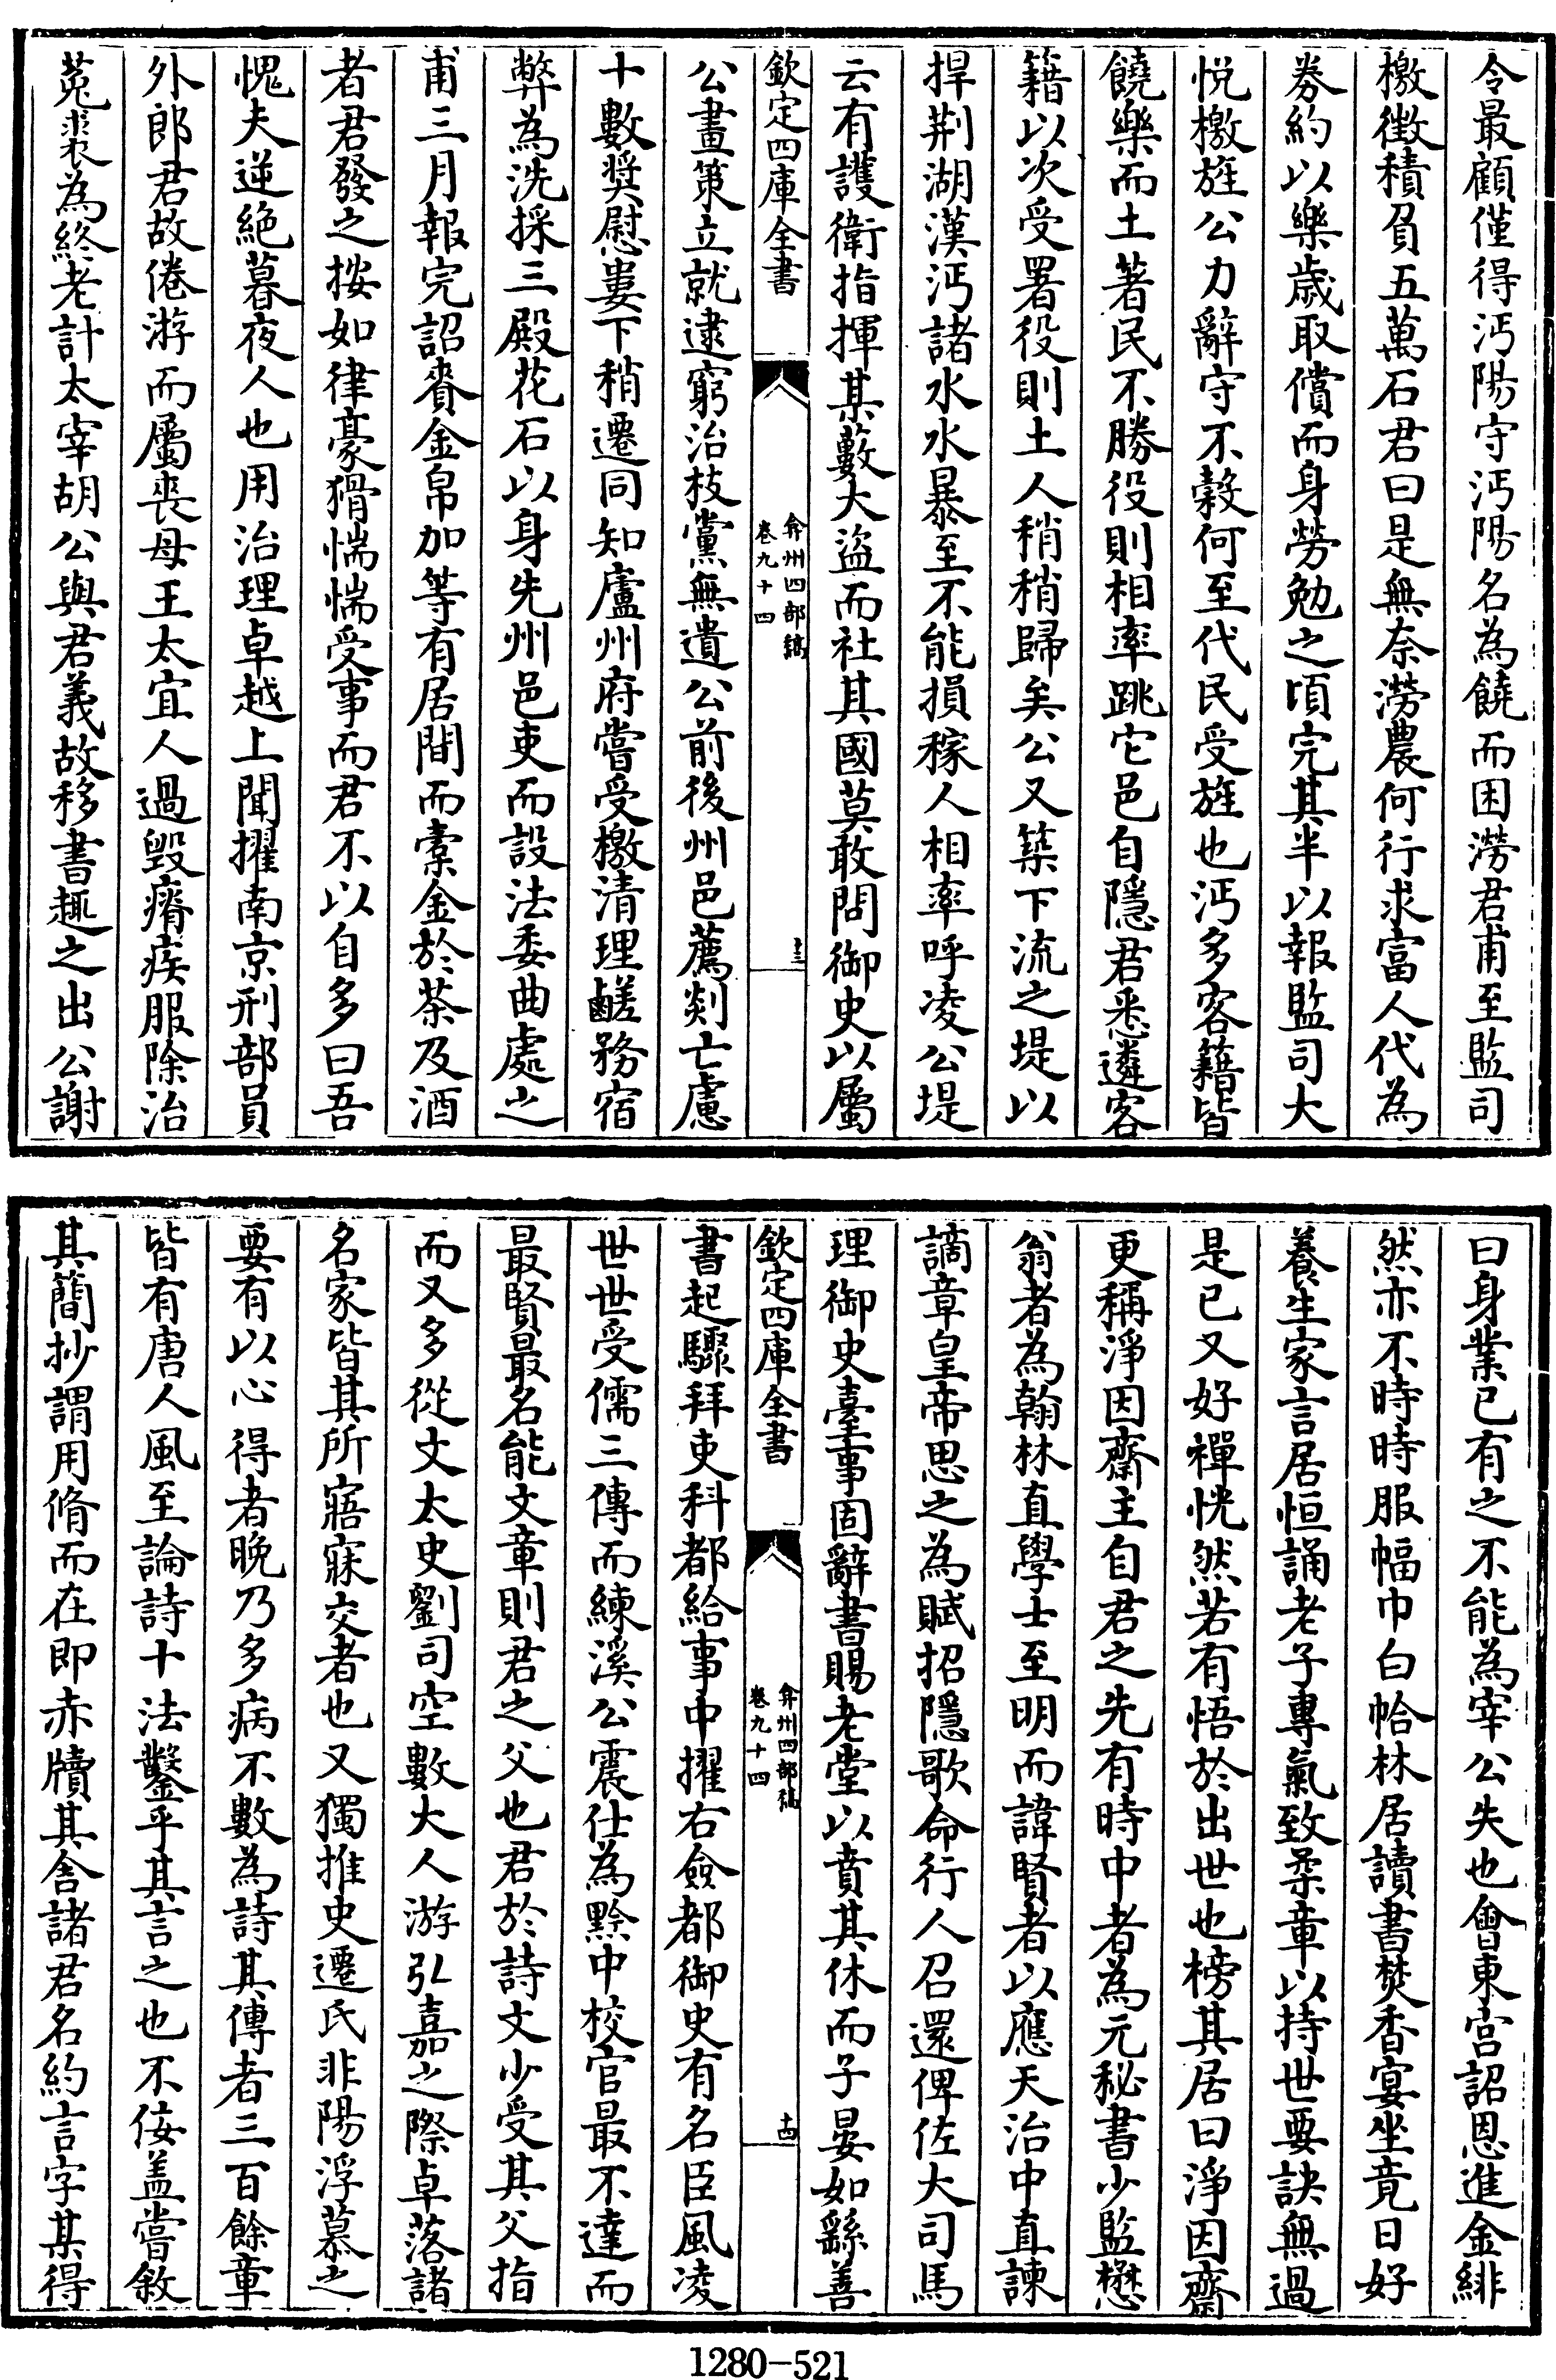 令最顧僅得沔陽守沔陽名為饒而困澇君甫至監司
檄徴積負五萬石君曰是無奈澇農何行求富人代為
券約以樂歳取償而身勞勉之頃完其半以報監司大
悦檄旌公力辭守不穀何至代民受旌也沔多客籍皆
饒樂而土著民不勝役則相率跳它邑自隱君悉遴客
籍以次受署役則土人稍稍歸矣公又築下流之堤以
捍荆湖漢沔諸水水暴至不能損稼人相率呼凌公堤
云有䕶衛指揮某藪大盜而社其國莫敢問御史以屬
欽定四庫全書
弇州四部稿
卷九十四
十三
公畫策立就逮窮治枝黨無遺公前後州邑薦剡亡慮
十數奬慰婁下稍遷同知廬州府嘗受檄清理鹺務宿
弊為洗採三殿花石以身先州邑吏而設法委曲處之
甫三月報完詔賚金帛加等有居間而槖金於茶及酒
者君發之按如律豪猾惴惴受事而君不以自多曰吾
愧夫逆絶暮夜人也用治理卓越上聞擢南京刑部員
外郎君故倦游而屬喪母王太宜人過毁瘠疾服除治
菟裘為終老計太宰胡公與君義故移書趣之出公謝
曰身業已有之不能為宰公失也㑹東宫詔恩進金緋
然亦不時時服幅巾白帢林居讀書焚香宴坐竟日好
養生家言居恒誦老子專氣致柔章以持世要訣無過
是已又好禪恍然若有悟於出世也榜其居曰淨因齋
更稱淨因齋主自君之先有時中者為元秘書少監懋
翁者為翰林直學士至明而諱賢者以應天治中直諫
謫章皇帝思之為賦招隱歌命行人召還俾佐大司馬
理御史臺事固辭書賜老堂以賁其休而子晏如繇善
欽定四庫全書
弇州四部稿
卷九十四
十四
書起驟拜吏科都給事中擢右僉都御史有名臣風凌
世世受儒三傳而練溪公震仕為黔中校官最不達而
最賢最名能文章則君之父也君於詩文少受其父指
而又多從文太史劉司空數大人游弘嘉之際卓落諸
名家皆其所寤寐交者也又獨推史遷氏非陽浮慕之
要有以心得者晩乃多病不數為詩其傳者三百餘章
皆有唐人風至論詩十法鑿乎其言之也不佞盖嘗敘
其簡抄謂用脩而在即赤牘其舍諸君名約言字某得
1280-521